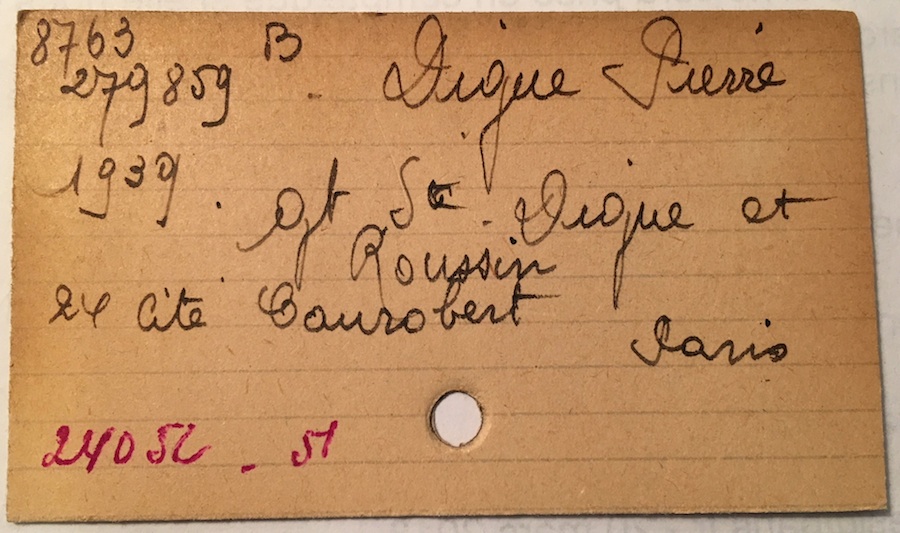 8763 B
279859 - Digue Pierre
1939.
gt Sté Digue et
Roussin
24 Cité Canrobert
Paris
24052 - 51